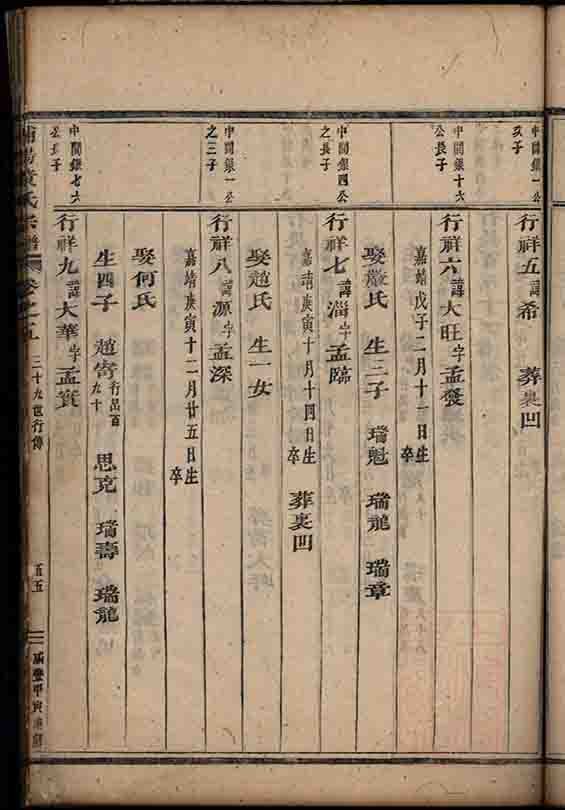 中閣銀一公
次子
行祥五諱希　葬裏凹
中閣銀十六
公長子
行祥六諱大旺字孟發
嘉靖戊子二月十一日生
卒
娶嚴氏　生二子　瑞魁　瑞龍　瑞章
中閣銀四公
之長子
行祥七諱淄字孟臨
嘉靖庚寅十月十四日生
卒
葬裏凹
娶趙氏　生一女
中閣銀一公
之三子
行祥八諱源字孟深
嘉靖庚寅十二月廿五日生
卒
娶何氏
生四子　趙奇行品百九十　思克　瑞壽　瑞龍
中閣銀七六
公長子
行祥九諱大華字孟實
黃氏宗譜　卷之五　三十九世行傳　百五　咸豐甲寅